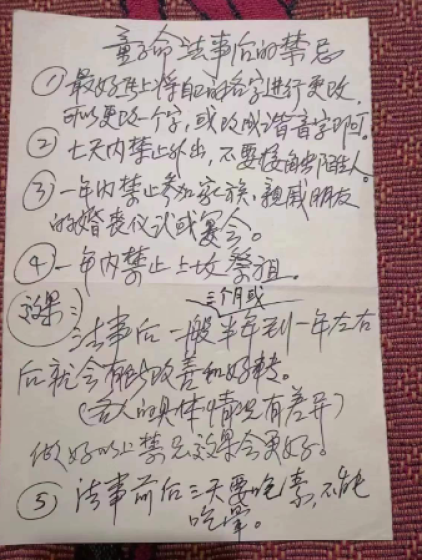 童子命法事后的禁忌
① 最好马上将自己的名字进行更改，
可以更改一个字，或改成谐音字即可。
② 七天内禁止外出，不要接触陌生人。
③ 一年内禁止参加家族、亲戚朋友
的婚丧仪式或宴会。
④ 一年内禁止上坟祭祖。
三个月或
效果：
法事后一般半年到一年左右
后就会有所改善和好转。
（各人的具体情况有差异）
做好以上禁忌效果会更好！
⑤ 法事前后三天要吃素，不能
吃荤。